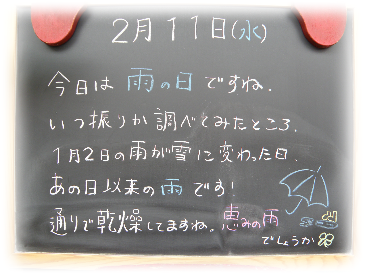 2月11日(水)
今日は雨の日ですね.
いつ振りか調べてみたところ.
1月2日の雨が雪に変わった日.
あの日以来の雨です!
通りで乾燥してますね。恵みの雨
でしょうか